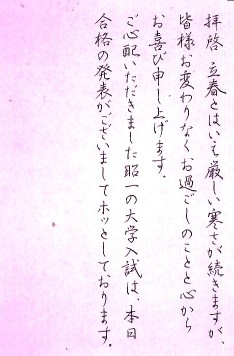 拝啓 立春とはいえ厳しい寒さが続きますが、
皆様お変わりなくお過ごしのことと心から
お喜び申し上げます。
ご心配いただきました昭一の大学入試は、本日
合格の発表がございましてホッとしております。